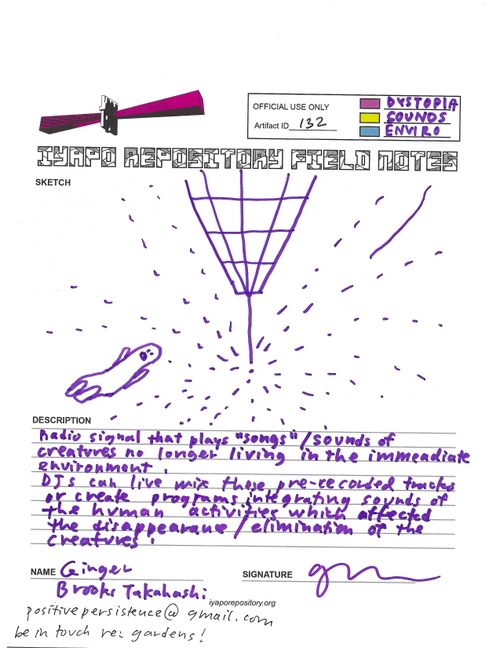 OFFICIAL USE ONLY
Artifact ID 132
DYSTOPIA
SOUNDS
ENVIRO
IYAPO REPOSITORY FIELD NOTES
SKETCH
DESCRIPTION
Radio signal that plays "songs"/sounds of
creatures no longer living in the immeadiate
environment.
DJs can live mix those pre-recorded tracks
or create programs integrating sounds of
the human activities which affected
the disappearance/elimination of the
creatures.
NAME Ginger
Brooks Takahashi
SIGNATURE
iyaporepository.org
positivepersistence@gmail.com
be in touch re: gardens!